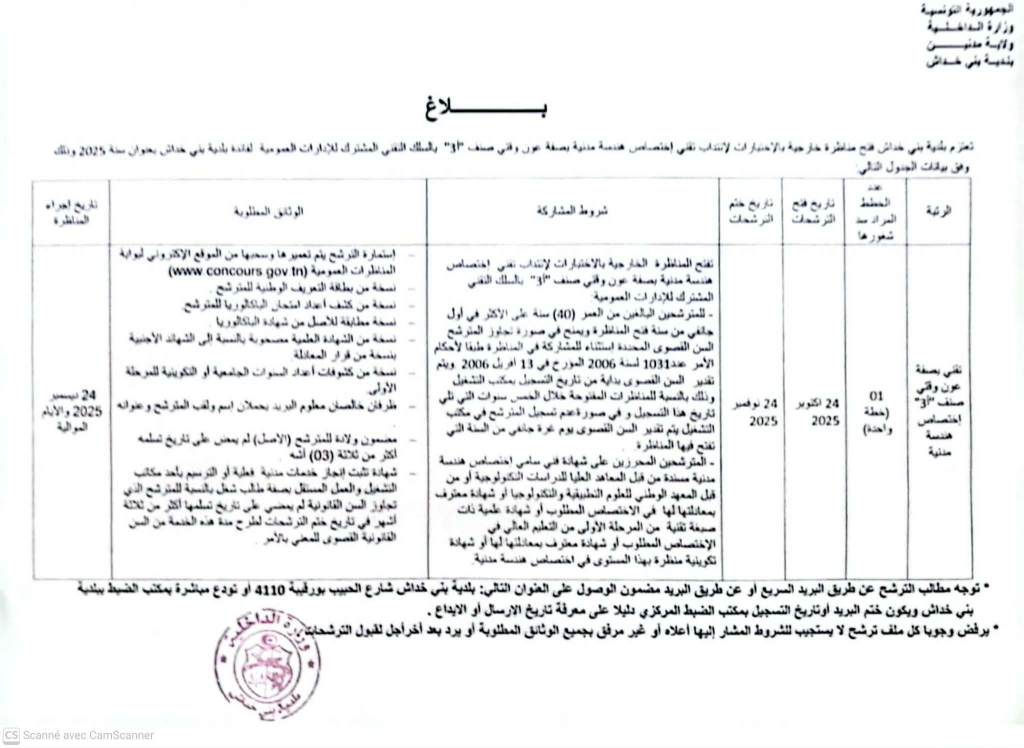 الجمهورية التونسية
وزارة الداخلية
ولاية مدنين
بلدية بني خداش
بـــــــلاغ
تعتزم بلدية بني خداش فتح مناظرة خارجية بالاختبارات لإنتداب تقني إختصاص هندسة مدنية بصفة عون وقتي صنف "أ3" بالسلك التقني المشترك للإدارات العمومية لفائدة بلدية بني خداش بعنوان سنة 2025 وذلك
وفق بيانات الجدول التالي:
الرتبة
عدد
الخطط
المراد سد
شغورها
تاريخ فتح
الترشحات
تاريخ ختم
الترشحات
شروط المشاركة
الوثائق المطلوبة
تاريخ اجراء
المناظرة
تقني بصفة
عون وقتي
صنف "أ3"
إختصاص
هندسة
مدنية
01
(خطة
واحدة)
24 اكتوبر
2025
24 نوفمبر
2025
تفتح المناظرة الخارجية بالاختبارات لإنتداب تقني إختصاص
هندسة مدنية بصفة عون وقتي صنف "أ3" بالسلك التقني
المشترك للإدارات العمومية:
- للمترشحين البالغين من العمر (40) سنة على الأكثر في أول
جانفي من سنة فتح المناظرة ويمنح في صورة تجاوز المترشح
السن القصوى المحددة إستثناء للمشاركة في المناظرة طبقا لأحكام
الأمر عدد1031 لسنة 2006 المؤرخ في 13 أفريل 2006 .ويتم
تقدير السن القصوى بداية من تاريخ التسجيل بمكتب التشغيل
وذلك بالنسبة للمناظرات المفتوحة خلال الخمس سنوات التي تلي
تاريخ هذا التسجيل و في صورةعدم تسجيل المترشح في مكتب
التشغيل يتم تقدير السن القصوى يوم غرة جانفي من السنة التي
تفتح فيها المناظرة.
- المترشحين المحرزين على شهادة فني سامي إختصاص هندسة
مدنية مسندة من قبل المعاهد العليا للدراسات التكنولوجية أو من
قبل المعهد الوطني للعلوم التطبيقية والتكنولوجيا أو شهادة معترف
بمعادلتها لها في الاختصاص المطلوب أو شهادة علمية ذات
صبغة تقنية من المرحلة الأولى من التعليم العالي في
الإختصاص المطلوب أو شهادة معترف بمعادلتها لها أو شهادة
تكوينية منظرة بهذا المستوى في اختصاص هندسة مدنية.
- إستمارة الترشح يتم تعميرها وسحبها من الموقع الإكتروني لبوابة
المناظرات العمومية (www concours gov tn)
- نسخة من بطاقة التعريف الوطنية للمترشح.
- نسخة من كشف أعداد امتحان الباكالوريا للمترشح.
- نسخة مطابقة للأصل من شهادة الباكالوريا .
- نسخة من الشهادة العلمية مصحوبة بالنسبة إلى الشهائد الأجنبية
بنسخة من قرار المعادلة
- نسخة من كشوفات أعداد السنوات الجامعية أو التكوينية للمرحلة
الأولى.
- ظرفان خالصان معلوم البريد يحملان إسم ولقب المترشح وعنوانه
- مضمون ولادة للمترشح (الأصل) لم يمض على تاريخ تسلمه
أكثر من ثلاثة (03) أشهر
- شهادة تثبت إنجاز خدمات مدنية فعلية أو الترسيم بأحد مكاتب
التشغيل والعمل المستقل بصفة طالب شغل بالنسبة للمترشح الذي
تجاوز السن القانونية لم يمضي على تاريخ تسلمها أكثر من ثلاثة
أشهر في تاريخ ختم الترشحات لطرح مدة هذه الخدمة من السن
القانونية القصوى للمعني بالأمر
24 ديسمبر
2025 والأيام
الموالية
* توجه مطالب الترشح عن طريق البريد السريع أو عن طريق البريد مضمون الوصول على العنوان التالي: بلدية بني خداش شارع الحبيب بورقيبة 4110 أو تودع مباشرة بمكتب الضبط ببلدية
بني خداش ويكون ختم البريد أوتاريخ التسجيل بمكتب الضبط المركزي دليلا على معرفة تاريخ الإرسال أو الايداع .
* يرفض وجوبا كل ملف ترشح لا يستجيب للشروط المشار إليها أعلاه أو غير مرفق بجميع الوثائق المطلوبة أو يرد بعد أخرأجل لقبول الترشحات
وزارة الداخلية
بلدية بني خداش
CS Scanné avec CamScanner